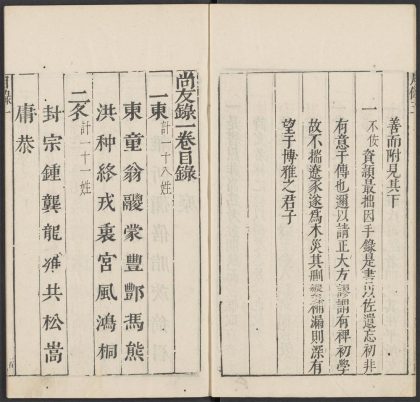 善而附見其下
一不佞資額最拙因手錄是書以佐遺忘初非
有意于傳也邇以請正大方謬謂有裨初學
故不揣遼豕遂為木災其刪繁補漏則深有
望于博雅之君子
尚友錄一卷目錄
一東計一十八姓
東童翁醲蒙豐酆馮熊
洪种終戎衷宮風鴻桐
二冬計一十一姓
封宗鍾龔龍雍共松嵩
庸恭